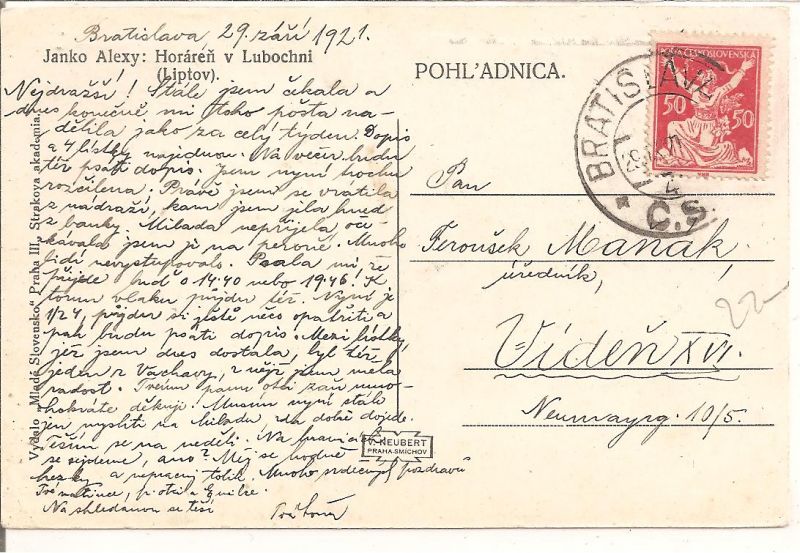 Bratislava, 29. září 1921.
Janko Alexy: Horáreň v Lubochni
(Liptov).
POHĽADNICA.
Nejdražší! Stále jsem čekala a
dnes konečně mi toho pošta na-
dělila jako za celý týden. Dopis
a 4 lístky najednou. Na večer budu
též psáti dopis. Jsem nyní trochu
rozčilena. Právě jsem se vrátila
z nádraží, kam jsem jela hned
z banky. Milada nepřijela oče
kávala jsem ji na peroně. Mnoho
lidí nevystupovalo. Psala mi, že
přijede buď o 14:40 nebo 19:46! K
tomu vlaku půjdu též. Nyní je
1/2 4, půjdu si ještě něco opatřiti a
pak budu psáti dopis. Mezi lístky,
jež jsem dnes dostala, byl též
jeden z Váchavy, z nějž jsem měla
radost. Tvému panu otci zaň mno-
hokráte děkuji. Musím nyní stále
jen mysliti na Miladu, zda dobře dojede.
Těším se na neděli. Na hranicích
se sejdeme, ano? Měj se hodně
hezky a nepracuj tolik. Mnoho srdečných pozdravů
Tvé matince, p. otci a Emilce.
Na shledanou se těší
Tvá
Vydalo „Mladé Slovensko“ Praha III., Strakova akademia.
V. NEUBERT
PRAHA-SMÍCHOV
ČESKOSLOVENSKÁ
50 50
BRATISLAVA
Č.S.
Pan
Feroušek Maňák,
úředník,
Vídeň XVI.
Neumayrg. 10/5.
22